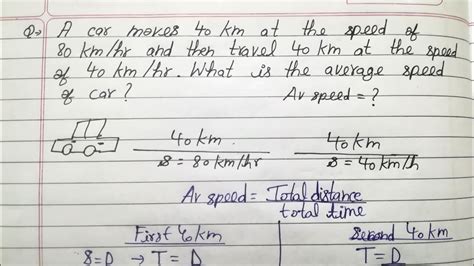 Q→ A car moves 40 km at the speed of
80 km/hr and then travel 40 km at the speed
of 40 km/hr. What is the average speed
of car?
Av speed = ?
40 km 40 km
s = 80 km/hr s = 40 km/hr
Av speed = Total distance
total time
First 40 km second 40 km
S = D → T = D T = D